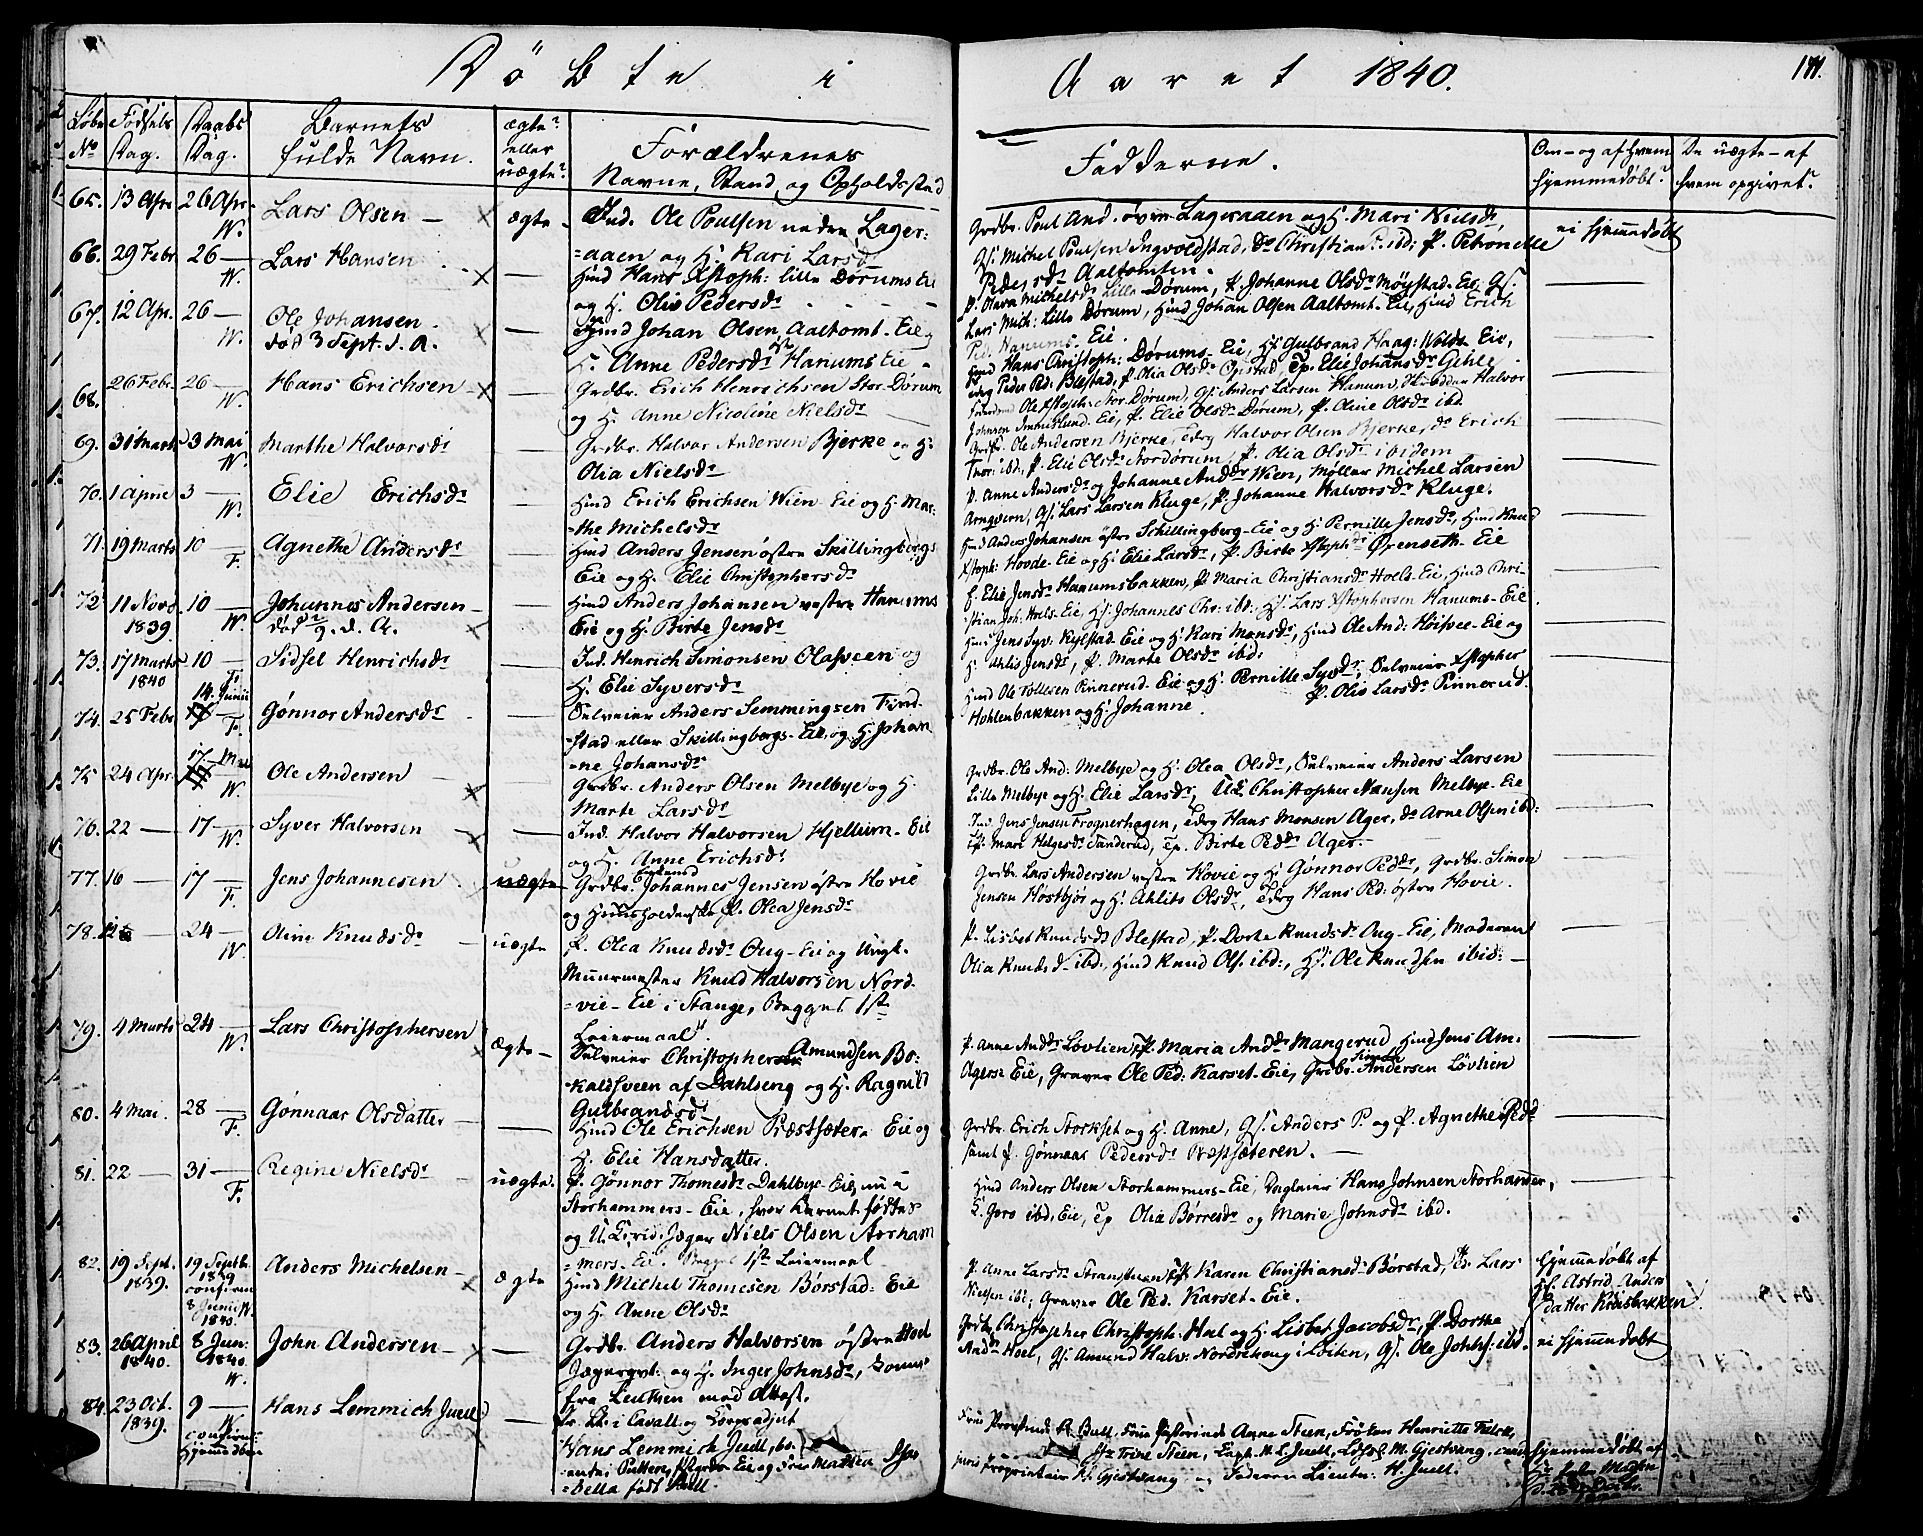 Döbte i Aaret 1840.
171.
Løbe No
Fødsels Dag.
Daabs Dag.
Barnets fulde Navn.
ægte? eller uægte?
Forældrenes Navne, Stand og Opholdssted
Fadderne.
Om- og af hvem hjemmedøbt?
De uægte - af hvem opgivet?
65. 13 Apr. 26 Apr. W. Lars Olsen ægte Ind. Ole Poulsen nedre Lager=
=aaen og H. Kari Larsdr
Grdbr. Poul And. øvre Lageraaen og H. Mari Nielsdr
Gs. Michel Poulsen Ingvoldstad, Do Christian P. ibd; P. Petronelle
Pedersdr Aaltomten.
ei hjemmedøbt
66. 29 Febr. 26 — W. Lars Hansen — Hmd Hans Xstoph: lille Dørums Eie
og H. Olie Pedersdr
P. Olava Michelsdr Lille Dørum, P. Johanne Olsdr Møystad-Eie, Gs.
Lars Mich: Lille Dørum, Hmd Johan Olsen Aaltomt-Eie, Hmd Erich
Ped. Hanums-Eie.
67. 12 Apr. 26 — W. Ole Johansen. — Hmd Johan Olsen Aaltomt-Eie og
død 3 Sept. d. A.
H. Anne Pedersdr Hanums Eie
Hmd Hans Christoph: Dørums-Eie, Gs Gulbrand Haag: Wolds-Eie,
Edrg Peder Ped: Blestad, P. Olia Olsdr Opstad, Ep. Elie Johansdr Gehle
68. 26 Febr. 26 — W. Hans Erichsen — Grdbr. Erich Henrichsen Stor-Dørum
og H. Anne Nicoline Nielsdr
Ole Xstoph: Nor. Dørum, Gs. Anders Larsen Hanum, Halvor
Johnsen Eie, P. Elie Olsdr Dørum, P. Oline Olsdr ibd.
69. 31 Marts 3 Mai W. Marthe Halvorsdr — Grdbr. Halvor Andersen Bjerke og H.
Olia Nielsdr
Grdbr. Ole Andersen Bjerke, Edrg Halvor Olsen Bjerke, Do Erich
Thor: ibd, P. Elie Olsdr Stordørum, P. Olia Olsdr ibidem
70. 1 Apr. 3 — W. Elie Erichsdr — Hmd Erich Erichsen Wien Eie og H. Mar=
=the Michelsdr
P. Anne Andersdr og Johanne Anddr Wien, Møller Michel Larsen
Arnqvern, Gs. Lars Larsen Kluge, P. Johanne Halvorsdr Kluge.
71. 19 Marts 10 — F. Agnethe Andersdr — Hmd Anders Jensen østre Skillingbergs
Eie og H. Elie Christophersdr
Hmd Anders Johansen østre Schillingberg-Eie og H. Pernille Jensdr, Hmd Knud
Xstoph: Hovde-Eie og H. Elie Larsdr, P. Birte Xstophdr Ørenseth-Eie
72 11 Novr 1839 10 — W. Johannes Andersen — Hmd Anders Johansen vestre Hanums
død 2/9. d. A.
Eie og H. Birte Jensdr
P. Elie Jensdr Hanumsbakken, P. Maria Christiansdr Hoels-Eie, Hmd Chri=
=stian Joh: Hoels-Eie, Gs. Johannes Chr: ibd:, Gs. Lars Xstophersen Hanums-Eie
73. 17 Marts 1840 10 — F. Sidsel Henrichsdr — Ind. Henrich Simonsen Olasveen og
H. Elie Syversdr
Hmd Jens Syv: Kylstad-Eie og H. Kari Monsdr, Hmd Ole And: Høisvee-Eie og
H. Ahlis Jensdr, P. Marte Olsdr ibd:
74. 25 Febr. 14. Junii F. Gønnor Andersdr — Selveier Anders Semmingsen Find=
=stad eller Skillingbergs-Eie, og H. Johan=
=ne Johansdr
Hmd Ole Tollefsen Pinnerud-Eie og H. Pernille Syvdr, Selveier Xstopher
Hohlenbakken og H. Johanne. P. Olia Larsdr Pinnerud.
75 24 Apr. 17. Mai W. Ole Andersen — Grdbr. Anders Olsen Melbye og H.
Marte Larsdr
Grdbr. Ole And: Melbye og H. Olea Olsdr, Selveier Anders Larsen
Lille Melbye og H. Elie Larsdr, Christopher Hansen Melbye-Eie
76. 22 — 17 — W. Syver Halvorsen — Ind. Halvor Halvorsen Hjellum-Eie
og H. Anne Erichsdr
Ind. Jens Jensen Frognerhagen, Edrg Hans Monsen Ager, Do Arne Olsen ibd:
P. Mari Helgesdr Sanderud, Ep. Birte Peddr Ager.
77. 16 — 17 — F. Jens Johannesen uægte Grdbr. Enkemd Johannes Jensen østre Hovie
og Huusholderske P. Olea Jensdr
Grdbr. Lars Andersen vestre Hovie og H. Gønnor Peddr, Grdbr. Simon
Jensen Høstbjør og H. Ahlits Olsdr, Edrg Hans Ped: østre Hovie.
78. 12 — 24 — W. Oline Knudsdr uægte P. Olea Knudsdr Oug-Eie og Ungk.
Muurmester Knud Halvorsen Nord=
=vie-Eie i Stange, Begges 1ste
Leiermaal.
P. Lisbet Knudsdr Blestad, P. Dorte Knudsdr Oug-Eie, Moderen
Olia Knudsdr ibd., Hmd Knud Ols. ibd:, Gs. Ole Knudsen ibid:
79. 4 Marts 24 — W. Lars Christophersen ægte Selveier Christopher Amundsen Bo=
=kaldsveen af Dahlseng og H. Ragnild
Gulbrandsdr
P. Anne Anddr Løvlien, P. Maria Anddr Mangerud, Hmd Jens Am.
Agers Eie, Graver Ole Ped: Karset-Eie, Grdbr. Simon Andersen Løvlien
80. 4 Mai. 28 — F. Gønnaar Olsdatter — Hmd Ole Erichsen Præstsæter Eie og
H. Elie Hansdatter.
Grdbr. Erich Storkset og H. Anne, Gs. Anders P. og P. Agnethe Peddr
samt P. Gønnaar Pedersdr Præstsæteren.
81. 22 — 31 — F. Regine Nielsdr uægte. P. Gønnor Thomesdr Dahlbye-Eie, nu i
Storhammers-Eie, hvor Barnet fødtes
og Jæger Niels Olsen Storham=
=mers-Eie. Begges 1ste Leiermaal
Hmd Anders Olsen Storhammers-Eie, Dagleier Hans Johnsen Storhammer,
K. Goro ibd, Eie, Ep Olia Børresdr og Marie Johnsdr ibd.
82. 19 Sept. 1839. 19 Septb. 1839 confirm 8 Junii 1840. W. Anders Michelsen ægte Hmd Michel Thomesen Børstad-Eie
og H. Anne Olsdr
P. Anne Larsdr P. Karen Christiansdr Børstad, Lars
Nielsen ibd; Graver Ole Ped. Karset-Eie.
hjemmedøbt af
Astrid Anders
datter Krusbakken
83. 26 April 1840. 8 Jun: 1840. W. John Andersen — Grdbr. Anders Halvorsen østre Hoel
Jægergvt: og H. Inger Johnsdr,
fra Leuthen med Attest.
Grdbr. Christopher Christoph: Hoel og H. Lisbet Jacobsdr, P. Dorthe
Anddr Hoel, Gs. Amund Halv: Nordrehoug i Løiten, Gs. Ole Johs: ibd.
ei hjemmedøbt
84. 23 Oct. 1839. 9 — W. confirm: Hjemmedøben Hans Lemmich Juell — Pr. Lt. i Cavall. og Corpsadjut
Hans Lemmich Juell, bo=
=ende i og Frue Mathea Isa=
=bella født Juell.
Frue Provstinde A. Bull, Frue Pastorinde Anne Steen, Frøken Henriette Falck,
Trine Steen, Capt. H. L. Juell, M. Gjestvang, cand.
juris Proprietair H. Gjestvang, og Faderen Lieutn: H. Juell.
hjemmedøbt af